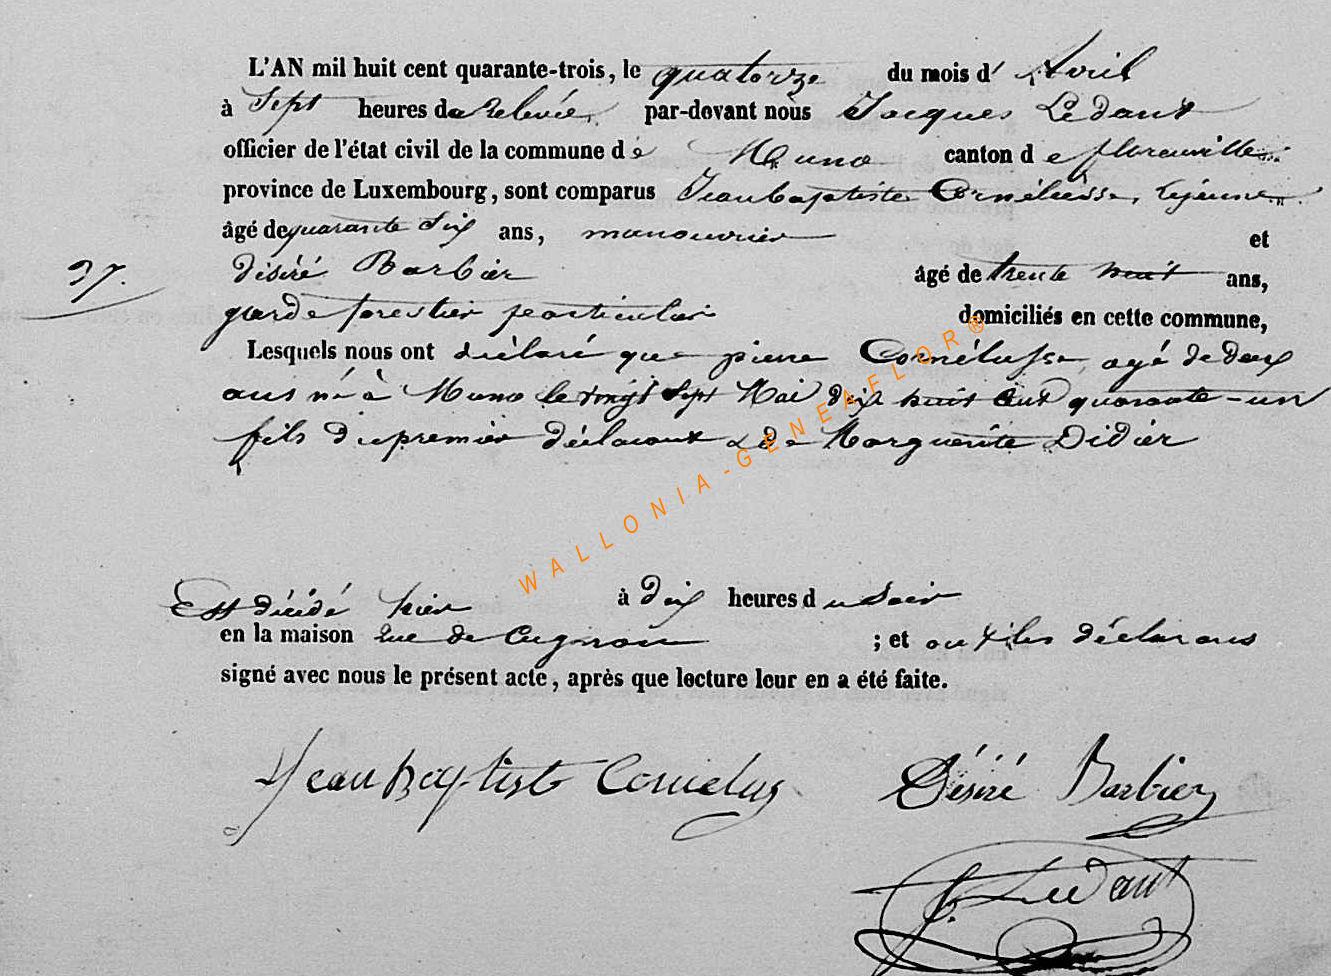 L'AN mil huit cent quarante-trois, le quatorze du mois d' Avril
à Sept heures de Relevée, par-devant nous Jacques Ledant
officier de l'état civil de la commune de Muno canton de florenville
province de Luxembourg, sont comparus Jean baptiste Cornélusse, lejeune
âgé de quarante dix ans, manouvrier et
37.
désiré Barbier âgé de trente huit ans,
garde forestier particulier domiciliés en cette commune,
Lesquels nous ont déclaré que pierre Cornélusse, agé de deux
ans né à Muno le vingt Sept Mai dix huit cent quarante-un
fils du premier déclarant & de Marguerite Didier
Est décédé hier à dix heures du Soir
en la maison Rue de Cugnon ; et ont les déclarans
signé avec nous le présent acte, après que lecture leur en a été faite.
Jean Baptiste Cornelus Désiré Barbier
J. Ledant
WALLONIA-GENEAFLOR®